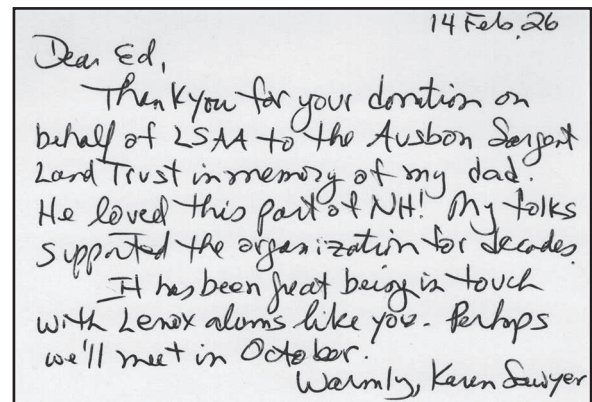 14 Feb. 26
Dear Ed,
Thank you for your donation on
behalf of LSAA to the Ausbon Sargent
Land Trust in memory of my dad.
He loved this part of NH! My folks
supported the organization for decades.
It has been great being in touch
with Lenox alums like you. Perhaps
we'll meet in October.
Warmly, Karen Sawyer